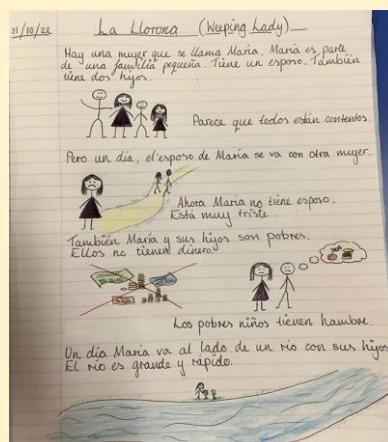 31/10/22
La Llorona (Weeping Lady)
Hay una mujer que se llama María. María es parte
de una familia pequeña. Tiene un esposo. También
tiene dos hijos.
Parece que todos están contentos.
Pero un día, el esposo de María se va con otra mujer.
Ahora María no tiene esposo.
Está muy triste.
También María y sus hijos son pobres.
Ellos no tienen dinero.
Los pobres niños tienen hambre.
Un día María va al lado de un río con sus hijos.
El río es grande y rápido.